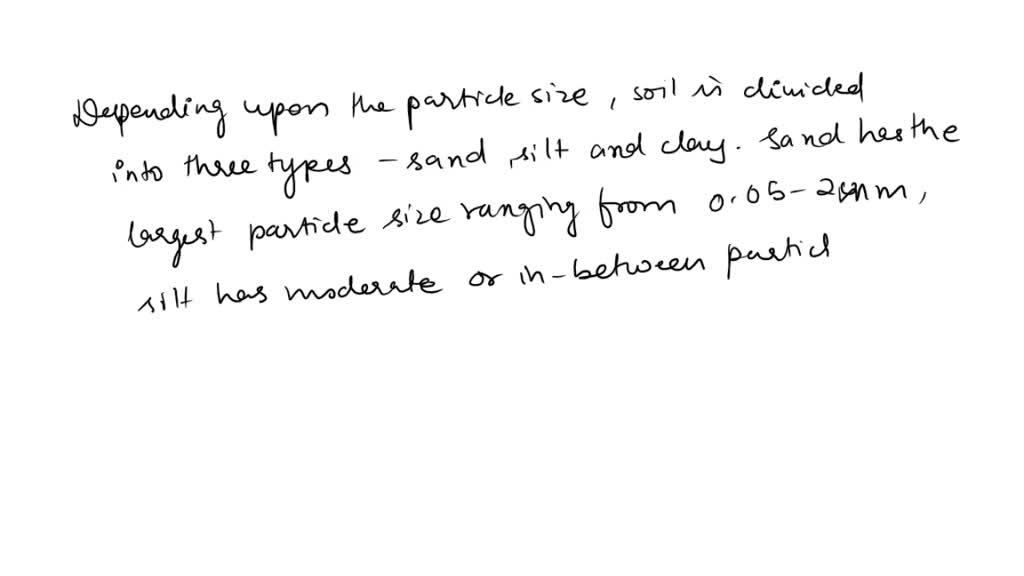 Depending upon the particle size, soil is divided
into three types - sand, silt and clay. Sand has the
largest particle size ranging from 0.05-2mm,
silt has moderate or in-between particl